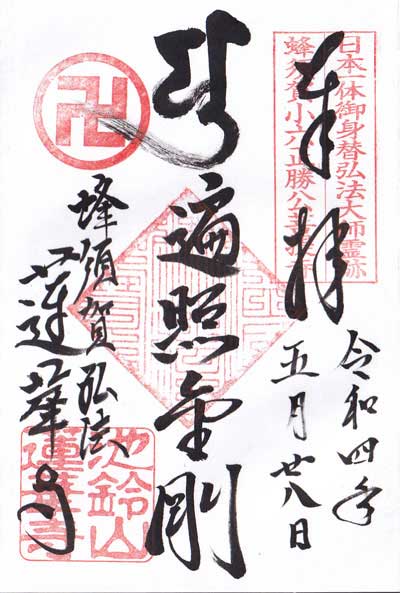 日本一体御身替弘法大師霊跡
蜂須賀小六正勝公菩提寺
奉拝
令和四年
五月廿八日
遍照金剛
蜂須賀弘法
蓮華寺
池鈴山
蓮華寺
卍